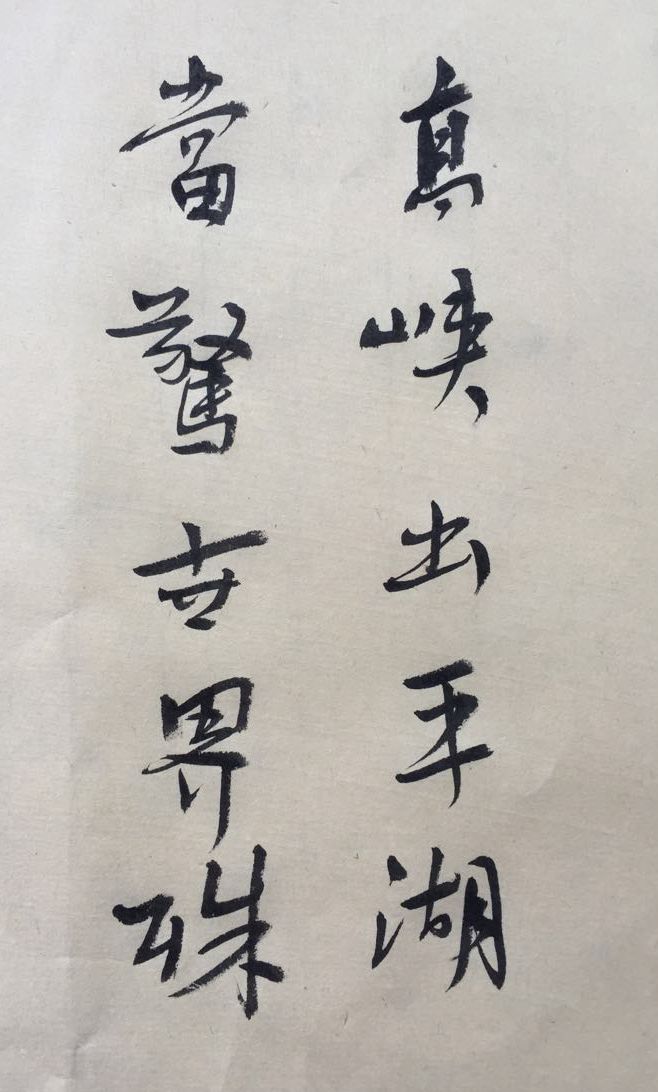 高峡出平湖
當驚世界殊